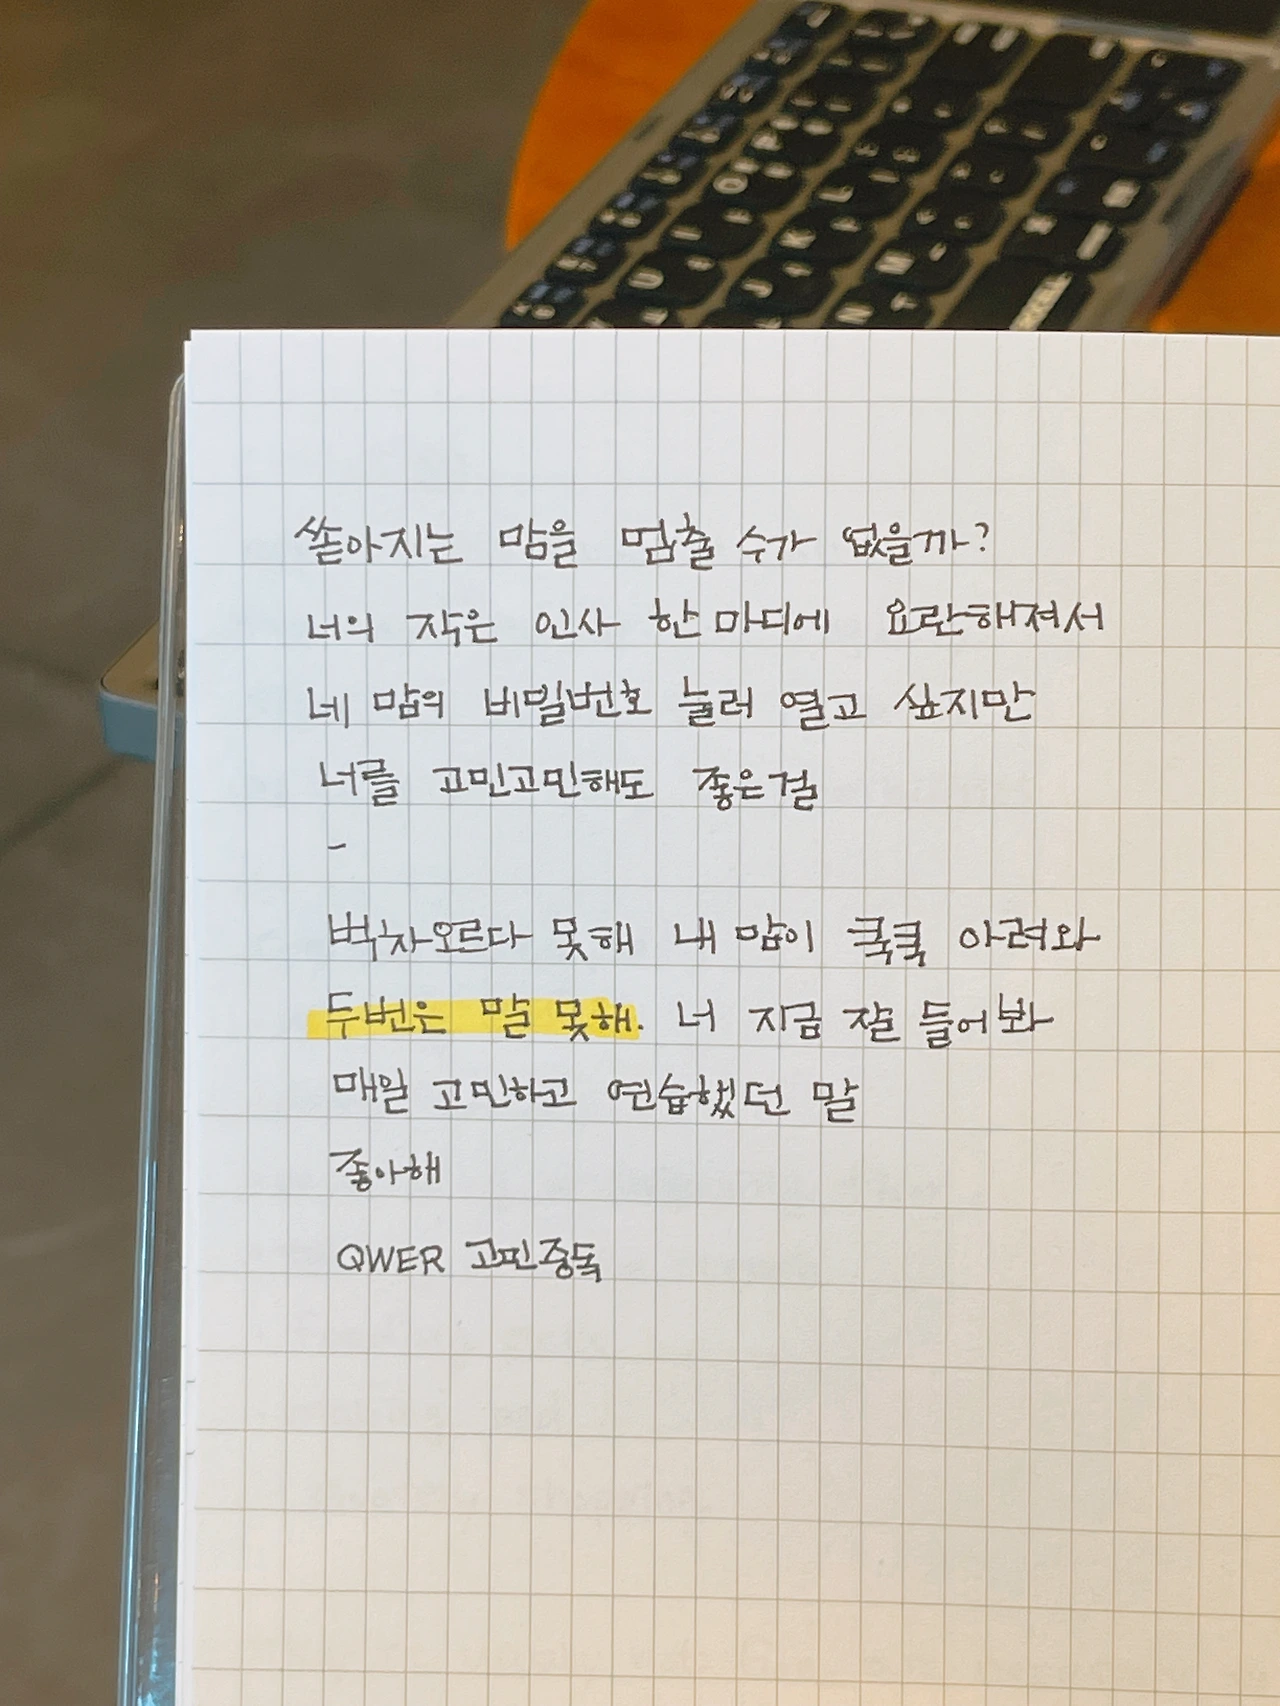 쏟아지는 맘을 멈출 수가 없을까?
너의 작은 인사 한 마디에 요란해져서
네 맘의 비밀번호 눌러 열고 싶지만
너를 고민고민해도 좋은걸
-
벅차오르다 못해 내 맘이 쿡쿡 아려와
두번은 말 못해. 너 지금 잘 들어봐
매일 고민하고 연습했던 말
좋아해
QWER 고민중독